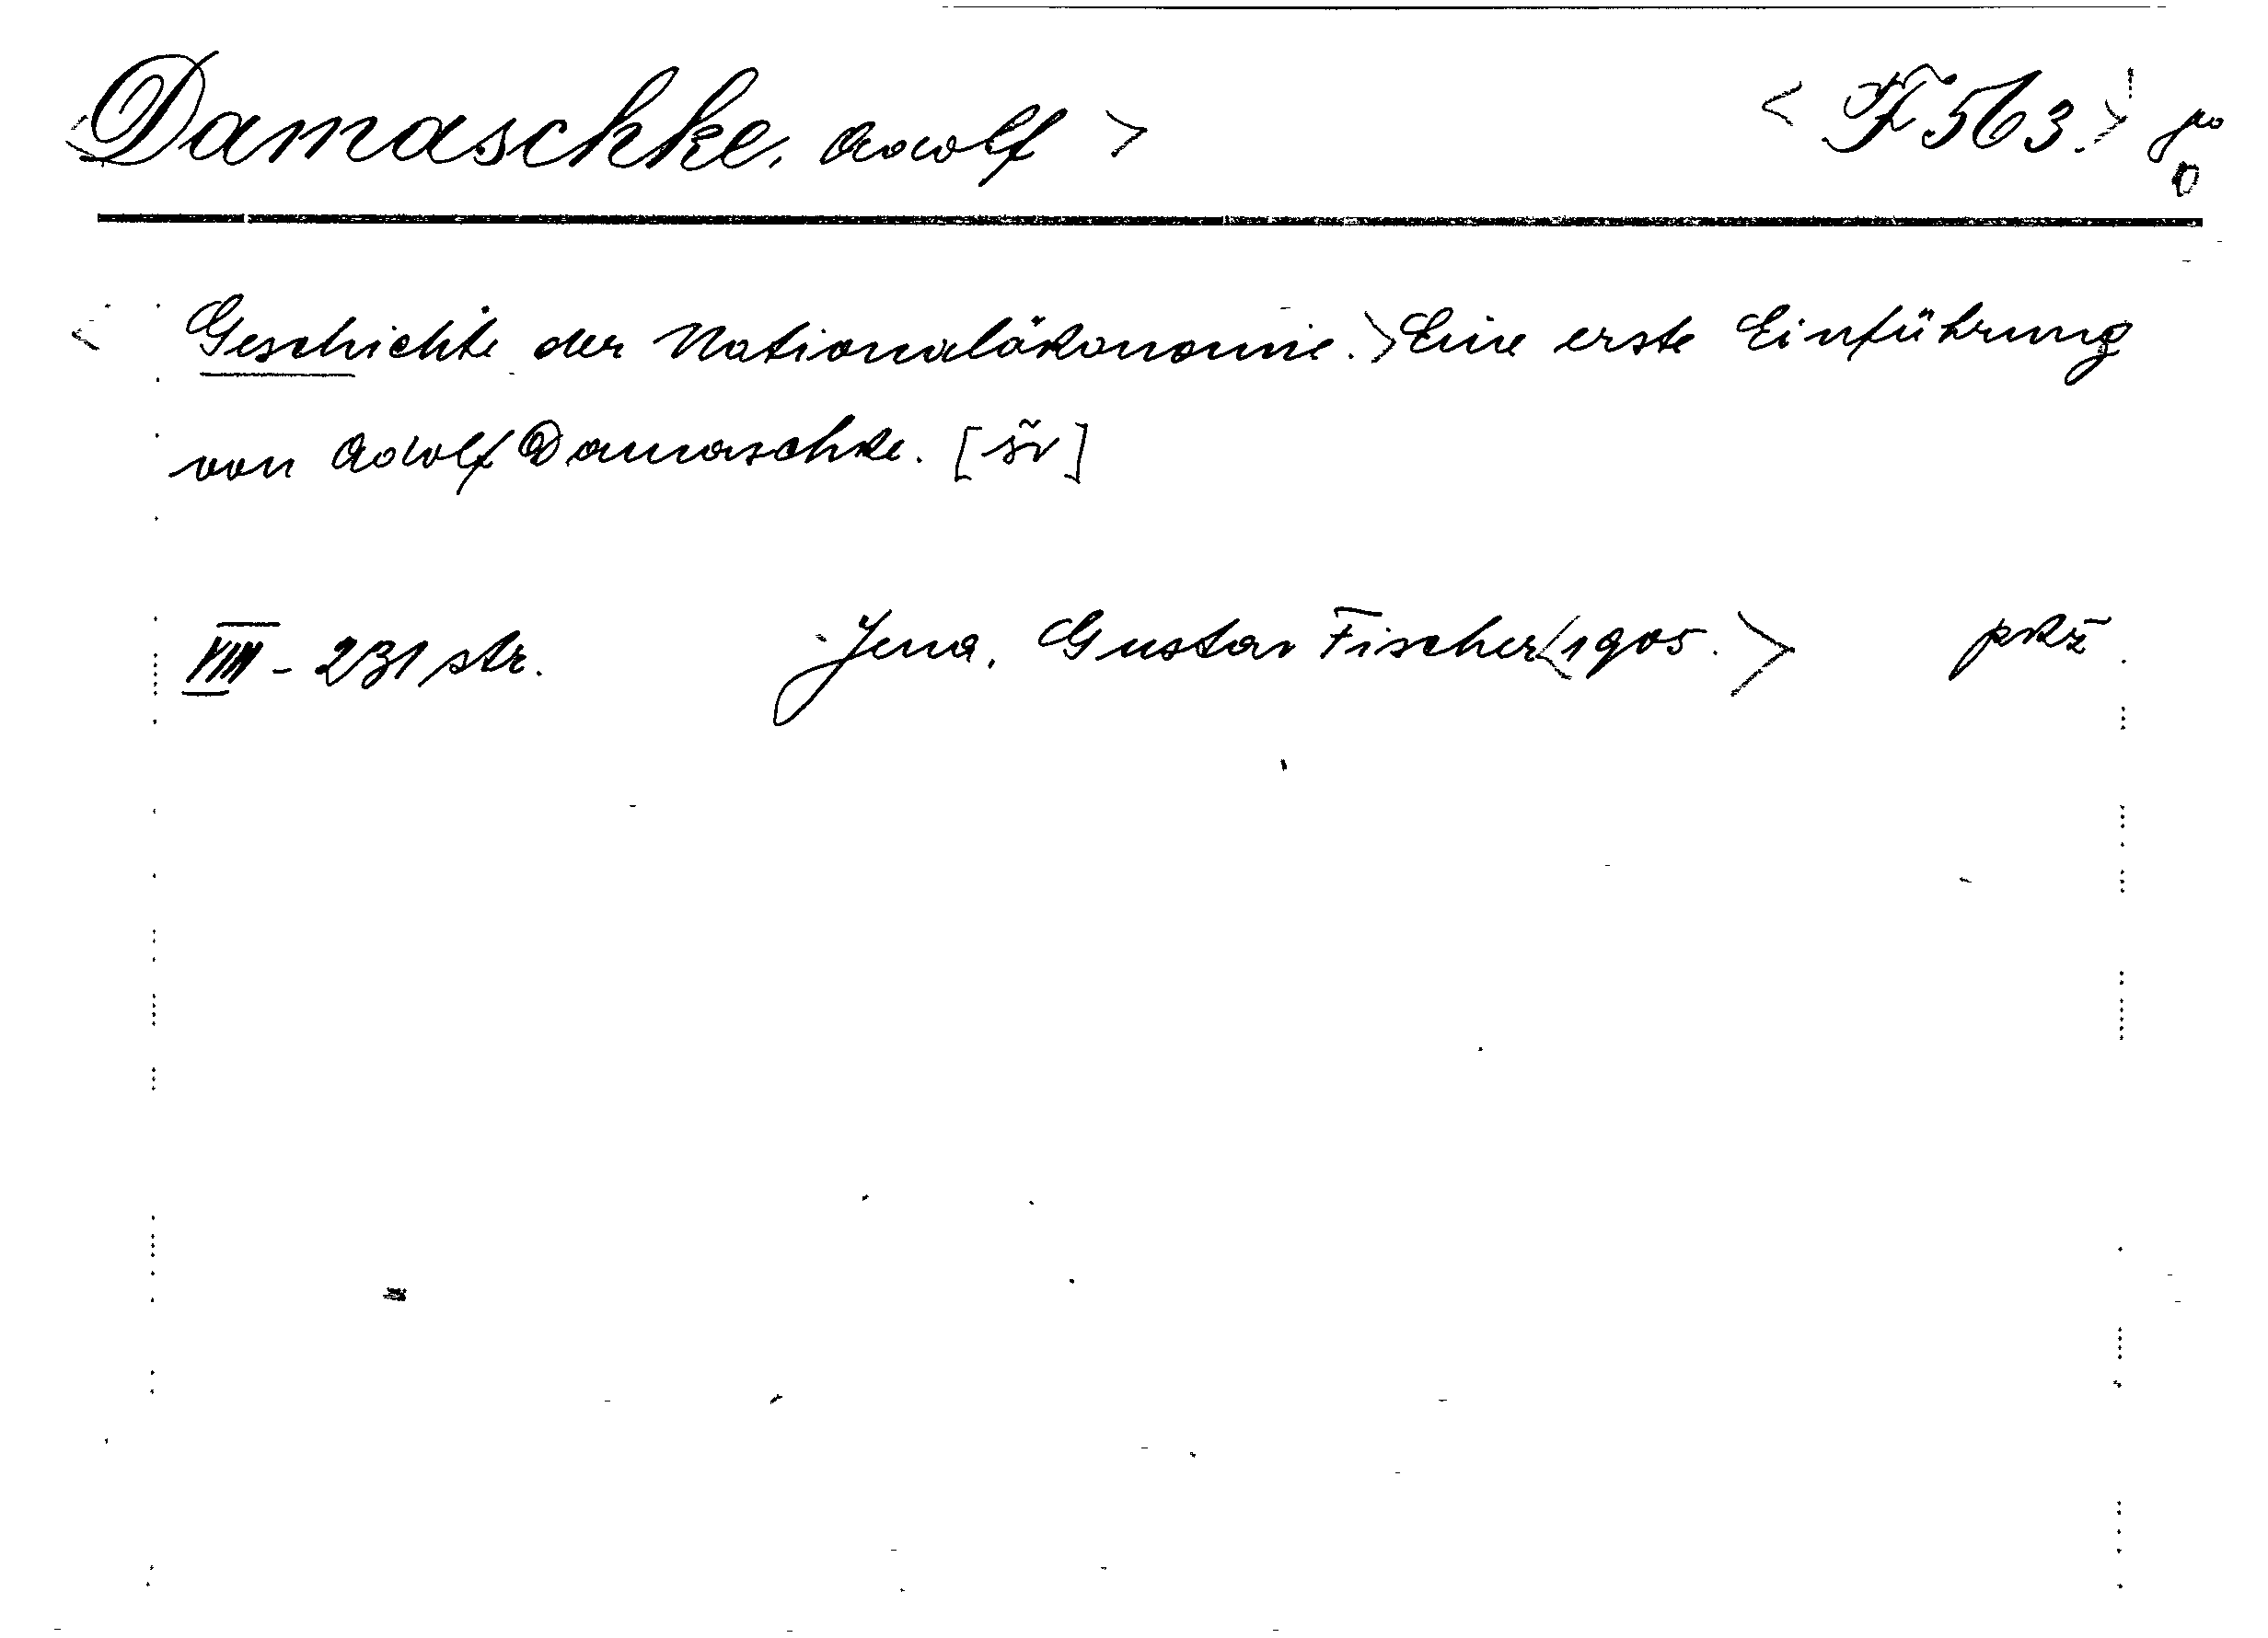 <Damaschke, Adolf> <F 563.>
<Geschichte der Nationalökonomie.> Eine erste Einführung
von Adolf Damaschke. [šv]
VIII - 231 str. Jena, Gustav Fischer <1905.> pkž